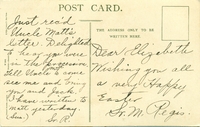 POST CARD.
THE ADDRESS ONLY TO BE
WRITTEN HERE.
Just rec'd
Uncle Matt's
letter. Delighted
to say you were
in the procession.
Tell Uncle to come
see me and
you and Jack.
I have written to
Matt yesterday.
S. R.
Dear Elizabeth
Wishing you all
a very Happy
Easter
Sr. M. Regis.